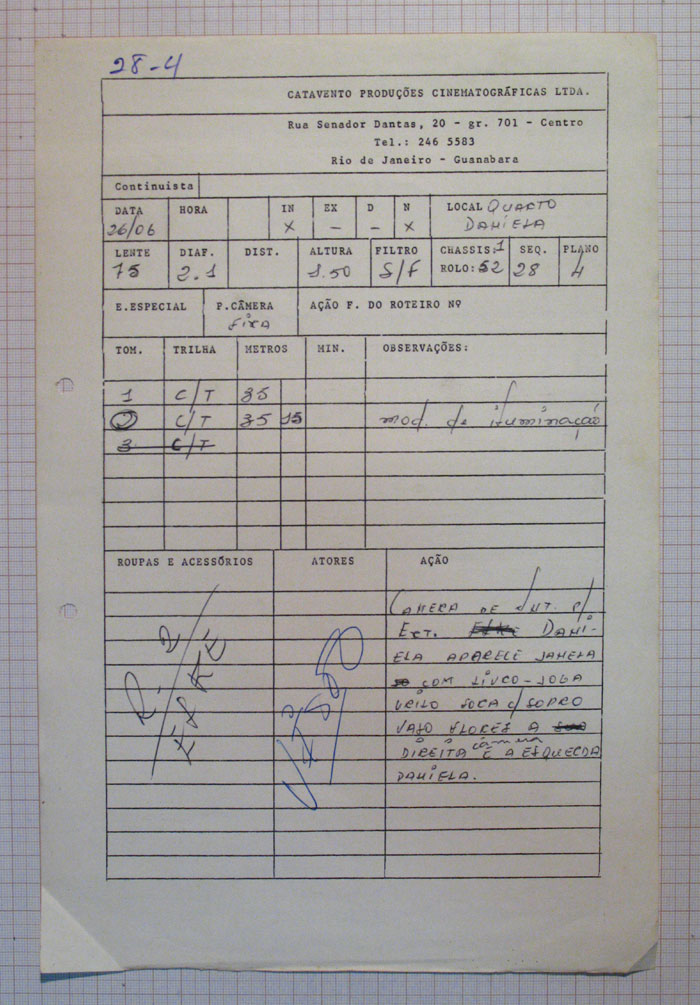 28-4
CATAVENTO PRODUÇÕES CINEMATOGRÁFICAS LTDA.
Rua Senador Dantas, 20 - gr. 701 - Centro
Tel.: 246 5583
Rio de Janeiro - Guanabara
Continuista
DATA HORA IN EX D N LOCAL QUARTO
26/06 X - - X DANIELA
LENTE DIAF. DIST. ALTURA FILTRO CHASSIS: 1 SEQ. PLANO
75 2.1 1.50 S/F ROLO: 52 28 4
E.ESPECIAL P.CÂMERA AÇÃO F. DO ROTEIRO Nº
FIXA
TOM. TRILHA METROS MIN. OBSERVAÇÕES:
1 C/T 35
2 C/T 35 15 mod. de iluminação
3 C/T
ROUPAS E ACESSÓRIOS ATORES AÇÃO
CAMERA DE INT. P/
EXT. DANI-
ELA APARECE JANELA
COM
SOPRO
VASO FLORES A
DIREITA câmera E A ESQUERDA
DANIELA.
R. 2
ELKE